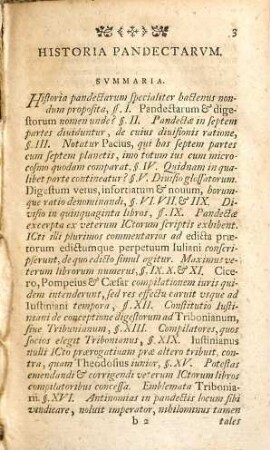 3
HISTORIA PANDECTARVM.
SVMMARIA.
Historia pandectarum specialiter hactenus non-
dum proposita, §. I. Pandectarum & dige-
storum nomen unde? §. II. Pandectæ in septem
partes dividuntur, de cuius divisionis ratione,
§. III. Notatur Pacius, qui has septem partes
cum septem planetis, imo totum ius cum micro-
cosmo quodam comparat. §. IV. Quidnam in qua-
libet parte contineatur? §. V. Divisio glossatorum.
Digestum vetus, infortiatum & novum, horum-
que ratio denominandi, §. VI. VII & IIX. Di-
visio in quinquaginta libros, §. IX. Pandectæ
excerpta ex veterum ICtorum scriptis exhibent.
ICti illi plurimos commentarios ad edicta præ-
torum edictumque perpetuum Iuliani conscri-
pserunt, de quo edicto simul agitur. Maximus ve-
terum librorum numerus, §. IX. X. & XI. Cice-
ro, Pompeius & Cæsar compilationem iuris qui-
dem intenderunt, sed res effectu caruit usque ad
Iustiniani tempora, §. XII. Constitutio Iusti-
niani de conceptione digestorum ad Tribonianum,
sive Tribunianum, §. XIII. Compilatores, quos
socios elegit Tribonianus, §. XIV. Iustinianus
nulli ICto prærogativam præ altero tribuit. con-
tra, quam Theodosius iunior, §. XV. Potestas
emendandi & corrigendi veterum ICtorum libros
compilatoribus concessa. Emblemata Tribonia-
ni. §. XVI. Antinomias in pandectis locum sibi
vindicare, noluit imperator, nihilominus tamen
b 2 tales